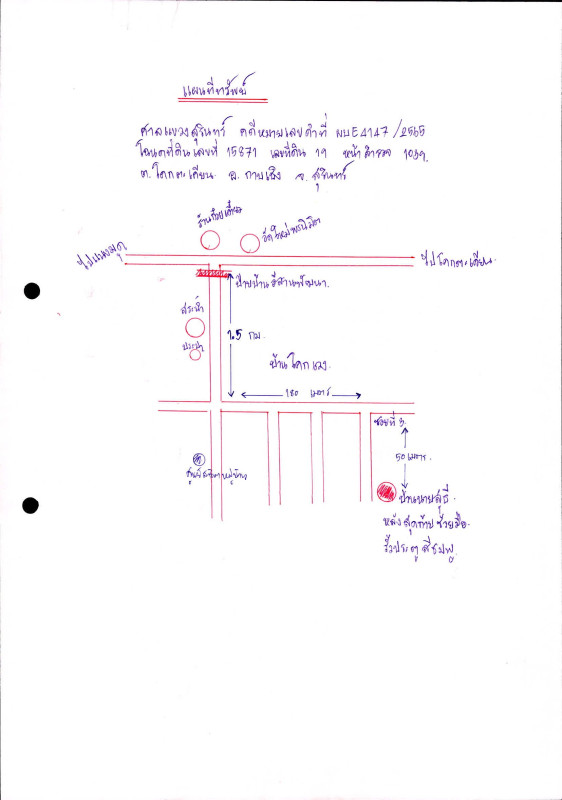 แผนที่ทรัพย์
ศาลแขวงสุรินทร์ คดีหมายเลขดำที่ ผบE4147/2565
โฉนดที่ดินเลขที่ 15871 เลขที่ดิน 19 หน้าสำรวจ 1039.
ต. โคกตะเคียน อ. กาบเชิง จ. สุรินทร์
ร้านก๋วยเตี๋ยว
ไปแนงมุด
ไปโคกตะเคียน
ป้ายบ้านอีสานพัฒนา.
สระน้ำ
ประปา
1.5 กม.
บ้านโคกแวง.
180 เมตร
ซอยที่ 3.
50 เมตร.
บ้านนายสุธี.
หลังสุดท้ายซ้ายมือ.
รั้วประตูสีชมพู